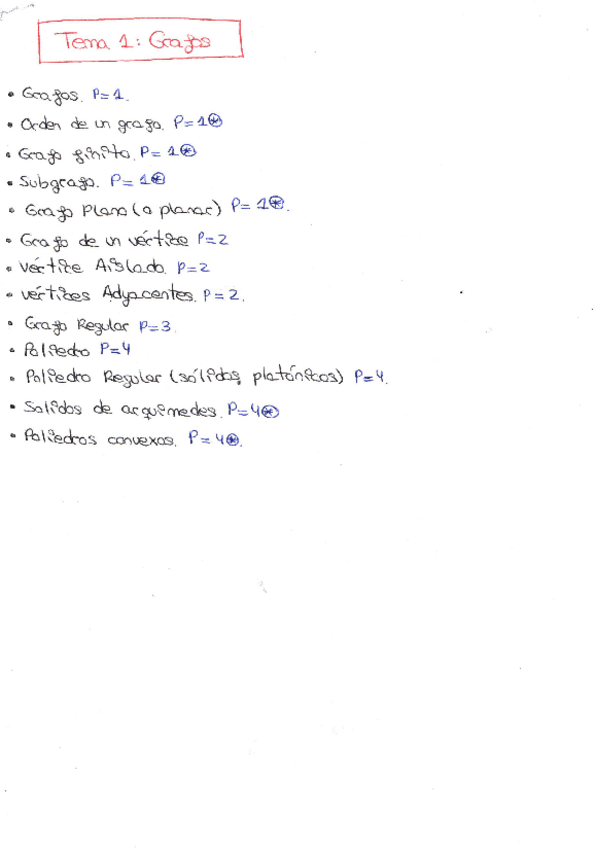 Tema 1: Grafos
• Grafos. P=1.
• Orden de un grafo. P=1⊛
• Grafo finito. P=1⊛
• Subgrafo. P=1⊛
• Grafo Plano (o planar) P=1⊛.
• Grafo de un vértice P=2
• Vértice Aislado. P=2
• vértices Adyacentes. P=2.
• Grafo Regular P=3
• Poliedro P=4
• Poliedro Regular (sólidos platónicos) P=4.
• Solidos de arquimedes. P=4⊛
• Poliedros convexos. P=4⊛.